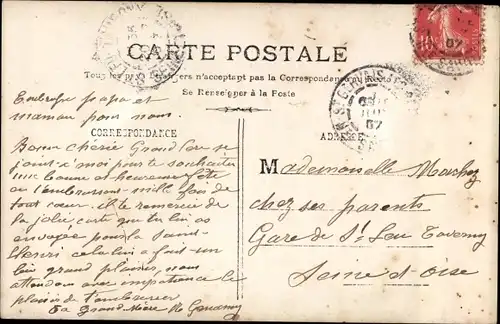 CARTE POSTALE
Tous les pays étrangers n'acceptent pas la Correspondance au Recto
Se Renseigner à la Poste
CORRESPONDANCE
ADRESSE
papa et
maman pour nous.
Bonne chérie Grand Père se
joint à moi pour te souhaiter
une bonne et heureuse fête
en t'embrassant mille fois de
tout cœur. il te remercie de
la jolie carte que tu lui as
envoyée pour la Saint
Henri cela lui a fait un
bien grand plaisir, nous
attendons avec impatience le
plaisir de t'embrasser
Ta Grand Mère
Mademoiselle
chez ses parents
Gare de St Leu Taverny
Seine et Oise
10
07